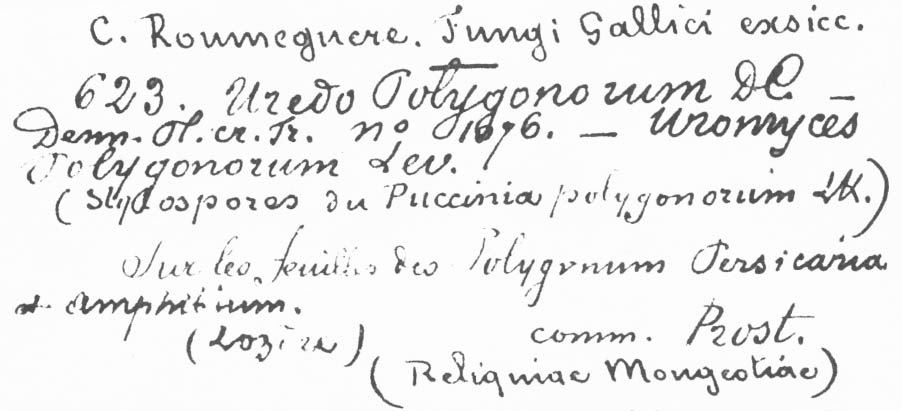 C. Roumeguere. Fungi Gallici exsicc.
623. Uredo Polygonorum DC —
Desm. Pl. cr. Fr. no 1676. — Uromyces
Polygonorum Lev.
(Stylospores du Puccinia polygonorum LK.)
Sur les feuilles des Polygonum Persicaria
et amphibium.
(Lozère) comm. Prost.
(Reliquiae Mougeotiae)